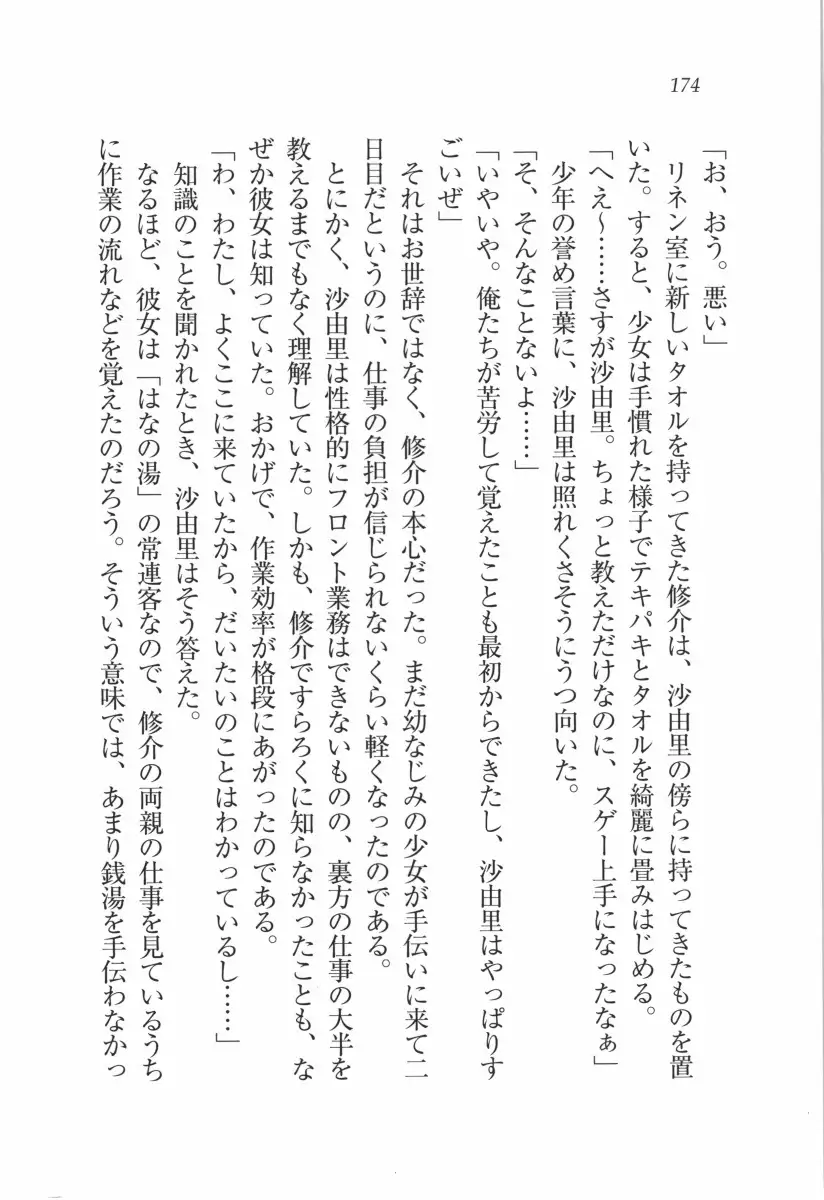 174
「お、おう。悪い」
リネン室に新しいタオルを持ってきた修介は、沙由里の傍らに持ってきたものを置
いた。すると、少女は手慣れた様子でテキパキとタオルを綺麗に畳みはじめる。
「へえ～……さすが沙由里。ちょっと教えただけなのに、スゲー上手になったなぁ」
少年の誉め言葉に、沙由里は照れくさそうにうつ向いた。
「そ、そんなことないよ……」
「いやいや。俺たちが苦労して覚えたことも最初からできたし、沙由里はやっぱりす
ごいぜ」
それはお世辞ではなく、修介の本心だった。まだ幼なじみの少女が手伝いに来て二
日目だというのに、仕事の負担が信じられないくらい軽くなったのである。
とにかく、沙由里は性格的にフロント業務はできないものの、裏方の仕事の大半を
教えるまでもなく理解していた。しかも、修介ですらろくに知らなかったことも、な
ぜか彼女は知っていた。おかげで、作業効率が格段にあがったのである。
「わ、わたし、よくここに来ていたから、だいたいのことはわかっているし……」
知識のことを聞かれたとき、沙由里はそう答えた。
なるほど、彼女は「はなの湯」の常連客なので、修介の両親の仕事を見ているうち
に作業の流れなどを覚えたのだろう。そういう意味では、あまり銭湯を手伝わなかっ